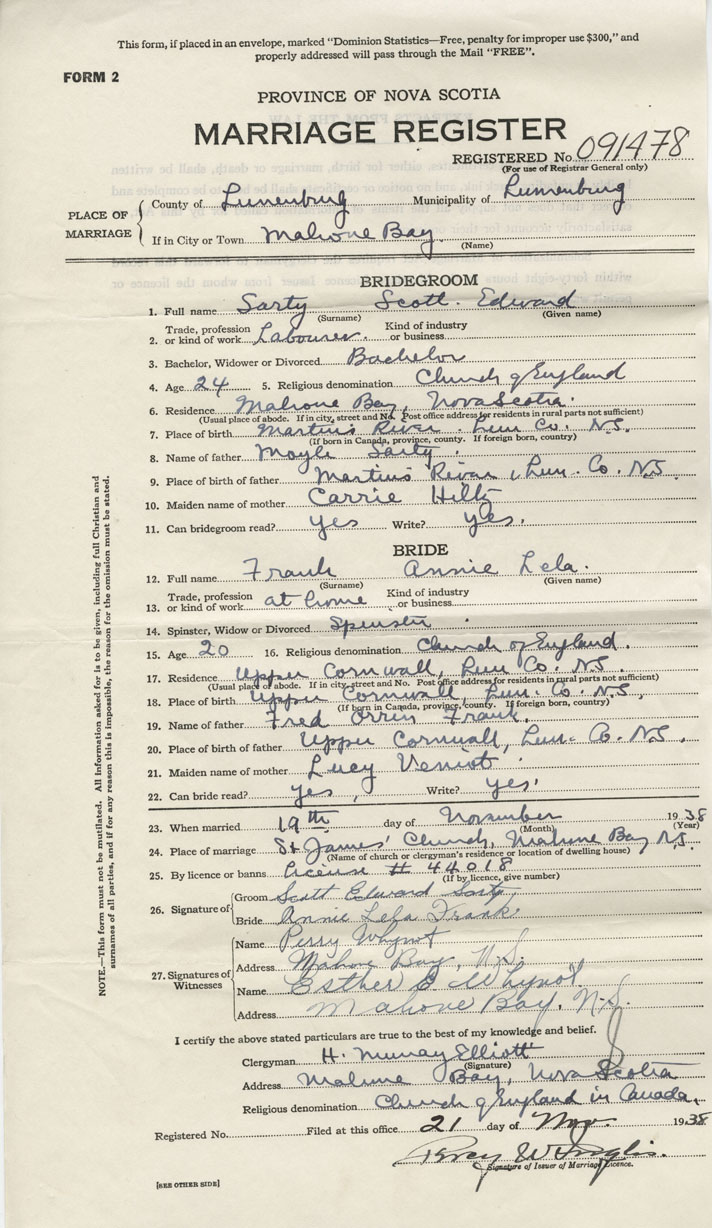 This form, if placed in an envelope, marked "Dominion Statistics—Free, penalty for improper use $300," and
properly addressed will pass through the Mail "FREE".
FORM 2
PROVINCE OF NOVA SCOTIA
MARRIAGE REGISTER
REGISTERED No. 091478
(For use of Registrar General only)
PLACE OF MARRIAGE
County of Lunenburg Municipality of Lunenburg
If in City or Town Mahone Bay.
(Name)
BRIDEGROOM
1. Full name Sarty Scott Edward
(Surname) (Given name)
2. Trade, profession or kind of work Labourer. Kind of industry or business
3. Bachelor, Widower or Divorced Bachelor
4. Age 24 5. Religious denomination Church of England
6. Residence Mahone Bay, Nova Scotia.
(Usual place of abode. If in city, street and No. Post office address for residents in rural parts not sufficient)
7. Place of birth Martins River. Lun Co. N.S.
(If born in Canada, province, county. If foreign born, country)
8. Name of father Moyle Sarty.
9. Place of birth of father Martins River, Lun. Co. N.S.
10. Maiden name of mother Carrie Hiltz
11. Can bridegroom read? yes Write? yes.
BRIDE
12. Full name Frank Annie Lela.
(Surname) (Given name)
13. Trade, profession or kind of work at home Kind of industry or business
14. Spinster, Widow or Divorced Spinster
15. Age 20 16. Religious denomination Church of England.
17. Residence Upper Cornwall, Lun Co. N.S.
(Usual place of abode. If in city, street and No. Post office address for residents in rural parts not sufficient)
18. Place of birth Upper Cornwall, Lun. Co. N.S.
(If born in Canada, province, county. If foreign born, country)
19. Name of father Fred Orrin Frank.
20. Place of birth of father Upper Cornwall, Lun. Co. N.S.
21. Maiden name of mother Lucy Veniot
22. Can bride read? yes, Write? yes.
23. When married 19th day of November 1938
(Month) (Year)
24. Place of marriage St James' Church, Mahone Bay N.S.
(Name of church or clergyman's residence or location of dwelling house)
25. By licence or banns license # 44018
(If by licence, give number)
26. Signature of Groom Scott Edward Sarty
Bride Annie Lela Frank.
27. Signatures of Witnesses
Name Perry Whynot
Address Mahone Bay, N.S.
Name Esther E Whynot
Address Mahone Bay. N.S.
I certify the above stated particulars are true to the best of my knowledge and belief.
Clergyman H. Murray Elliott
(Signature)
Address Mahone Bay, Nova Scotia
Religious denomination Church of England in Canada.
Registered No. Filed at this office 21 day of Nov. 1938
Signature of Issuer of Marriage Licence.
[SEE OTHER SIDE]
NOTE.—This form must not be mutilated. All information asked for is to be given, including full Christian and
surnames of all parties, and if for any reason this is impossible, the reason for the omission must be stated.